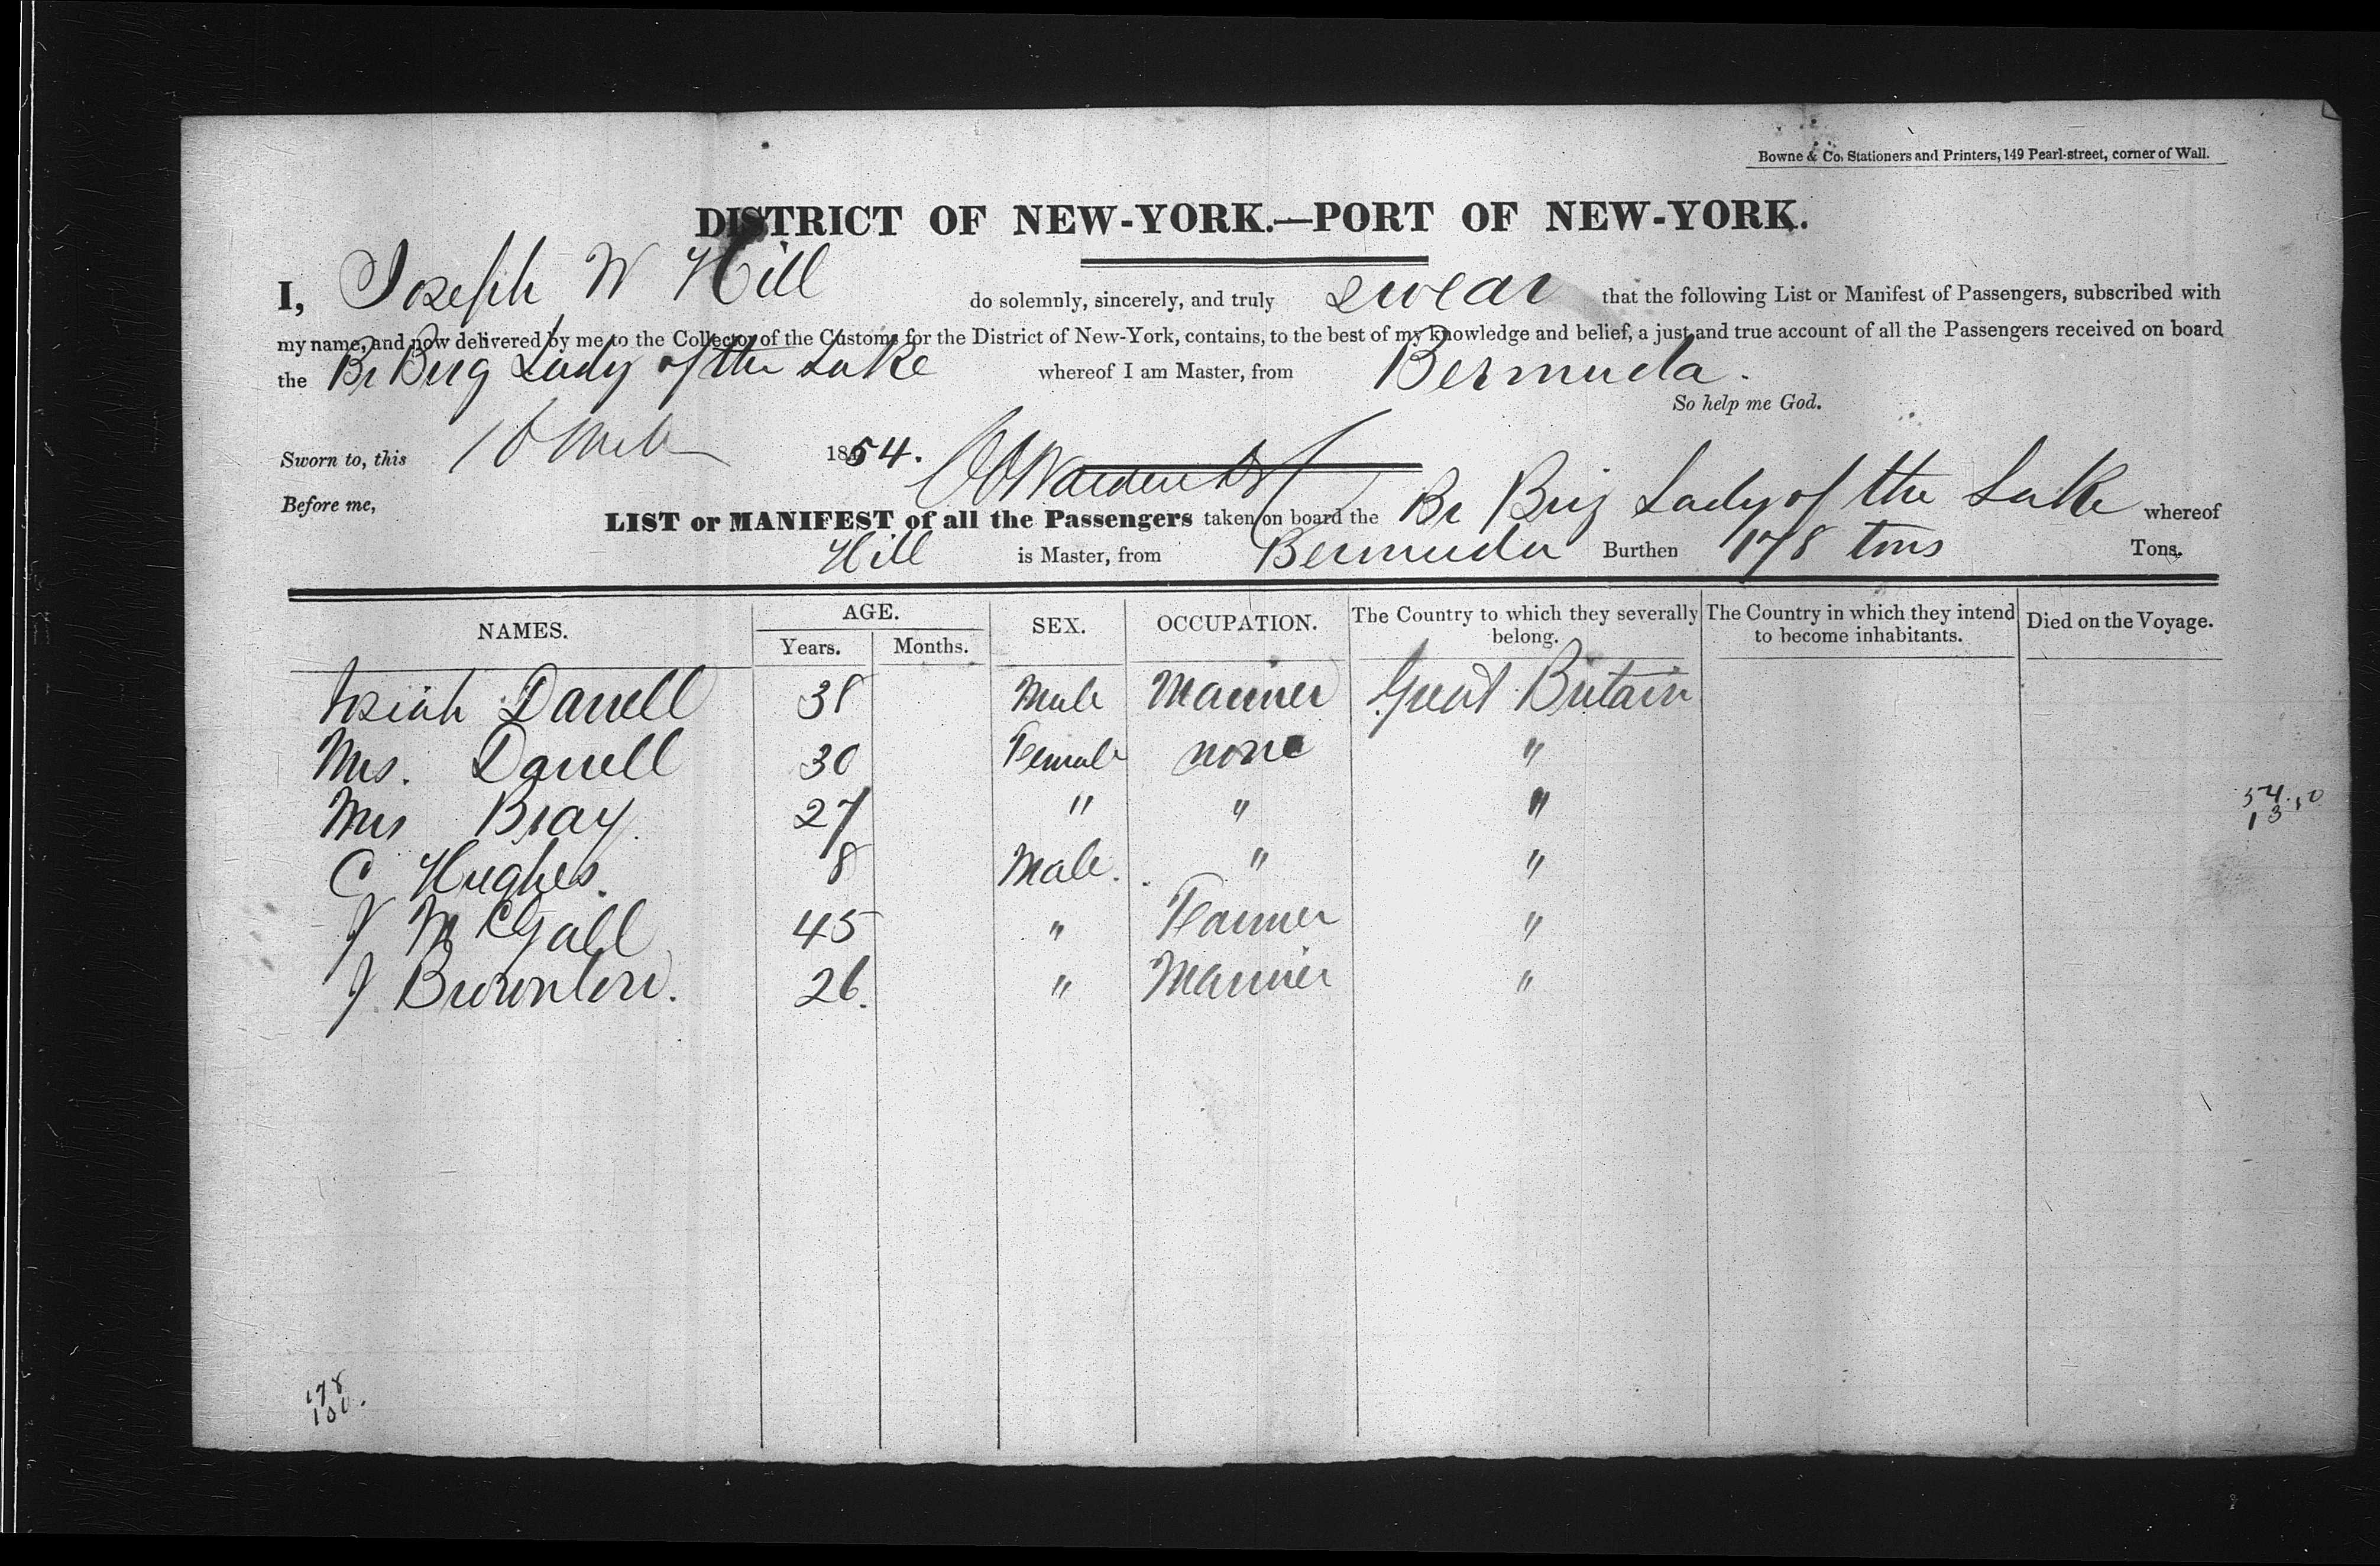 Bowne & Co. Stationers and Printers, 149 Pearl-street, corner of Wall.
DISTRICT OF NEW-YORK.—PORT OF NEW-YORK.
I, Joseph W Hill do solemnly, sincerely, and truly swear that the following List or Manifest of Passengers, subscribed with
my name, and now delivered by me to the Collector of the Customs for the District of New-York, contains, to the best of my knowledge and belief, a just and true account of all the Passengers received on board
the Br Brig Lady of the Lake whereof I am Master, from Bermuda.
So help me God.
Sworn to, this 1854.
Before me,
LIST or MANIFEST of all the Passengers taken on board the Br Brig Lady of the Lake whereof
Hill is Master, from Bermuda Burthen 178 tons Tons.
NAMES. AGE. Years. Months. SEX. OCCUPATION. The Country to which they severally belong. The Country in which they intend to become inhabitants. Died on the Voyage.
Darrell 38 Male Mariner Great Britain
Mrs. Darrell 30 Female none "
Mrs Bray 27 " " "
C Hughes. 8 Male. " "
J McGall 45 " Farmer "
J. 26. " Mariner "
178